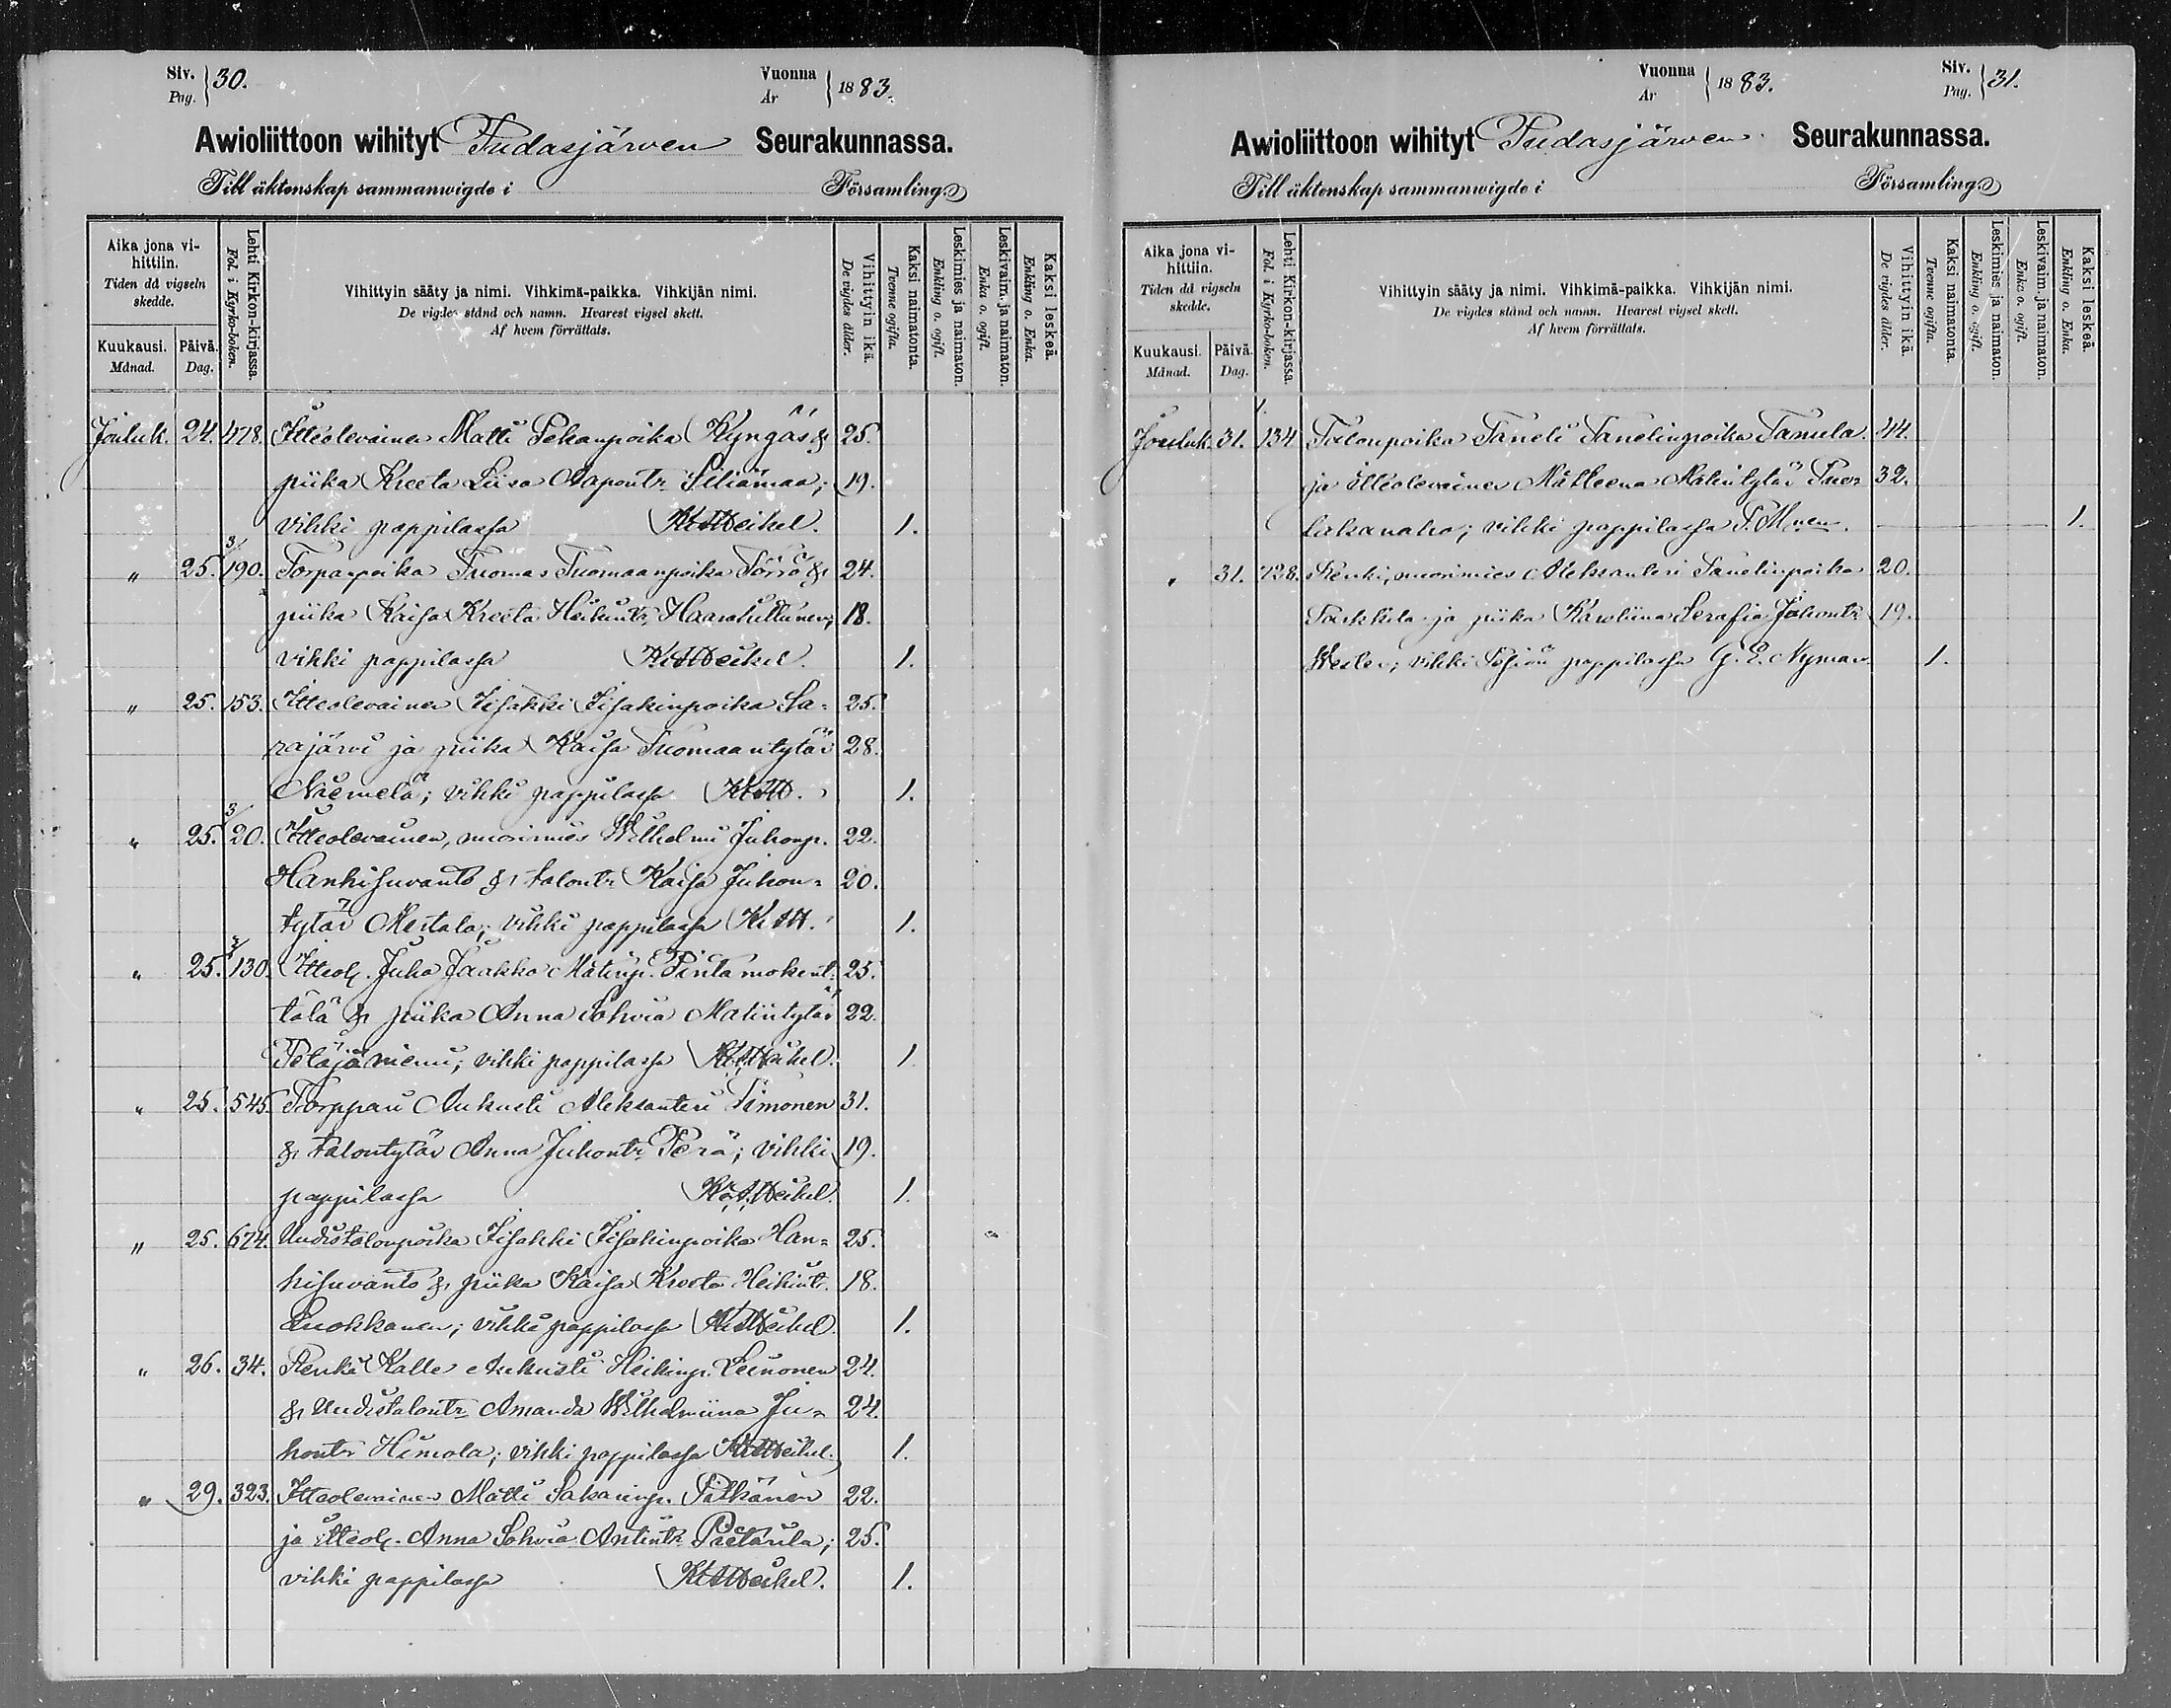 Siv. Pag. 30.
Vuonna År 1883.
Awioliittoon wihityt Pudasjärven Seurakunnassa.
Till äktenskap sammanwigde i Församling.
Aika jona vihittiin.
Tiden då vigseln skedde.
Kuukausi. Månad.
Päivä. Dag.
Lehti Kirkon-kirjassa. Fol. i Kyrko-boken.
Vihittyin sääty ja nimi. Vihkimä-paikka. Vihkijän nimi.
De vigdes stånd och namn. Hvarest vigsel skett.
Af hvem förrättats.
Vihittyin ikä. De vigdes ålder.
Kaksi naimatonta. Tvenne ogifta.
Leskimies ja naimaton. Enkling o. ogift.
Leskivaim. ja naimaton. Enka o. ogift.
Kaksi leskeä. Enkling o. Enka.
Jouluk. 24. 478. Itteolevainen Matti Pekanpoika Kyngäs & 25.
piika Kreeta Liisa Aapontr Siliämaa; 19.
vihki pappilassa 1.
" 25. 3/190. Torpanpoika Tuomas Tuomaanpoika Törrö & 24.
piika Kaisa Kreeta Heikintr Haarahiltunen; 18.
vihki pappilassa 1.
" 25. 153. Itteolevainen Iisakki Iisakinpoika Sa- 25.
rajärvi ja piika Kaisa Tuomaantytär 28.
Niemelä; vihki pappilassa 1.
" 25. 3/20. Itteolevainen, nuorimies Wilhelmi Juhonp. 22.
Hankisuvanto & talontr Kaisa Juhon- 20.
tytär Mertala; vihki pappilassa 1.
" 25. 130. Itteol. Juho Jaakko Matinp. Pintamokent- 25.
tälä & piika Anna Sohvia Matintytär 22.
Petäjäniemi; vihki pappilassa 1
" 25. 545. Torppari Aukusti Aleksanteri Timonen 31.
& talontytär Anna Juhontr Perä; vihki 19.
pappilassa 1.
" 25. 674. Uudistalonpoika Iisakki Iisakinpoika Han- 25.
kisuvanto & piika Kaisa Kreeta Heikintr. 18.
Luokkanen; vihki pappilassa 1.
" 26. 34. Renki Kalle Aukusti Heikinp. Leinonen 24.
& Uudistalontr Amanda Wilhelmiina Ju- 24.
hontr Himola; vihki pappilassa 1.
" 29. 323. Itteolevainen Matti Sakarinp. Pätkänen 22.
ja itteol. Anna Sohvia Antintr Pietarila; 25.
vihki pappilassa 1.
Vuonna År 1883.
Siv. Pag. 31.
Awioliittoon wihityt Pudasjärven Seurakunnassa.
Till äktenskap sammanwigde i Församling.
Aika jona vihittiin.
Tiden då vigseln skedde.
Kuukausi. Månad.
Päivä. Dag.
Lehti Kirkon-kirjassa. Fol. i Kyrko-boken.
Vihittyin sääty ja nimi. Vihkimä-paikka. Vihkijän nimi.
De vigdes stånd och namn. Hvarest vigsel skett.
Af hvem förrättats.
Vihittyin ikä. De vigdes ålder.
Kaksi naimatonta. Tvenne ogifta.
Leskimies ja naimaton. Enkling o. ogift.
Leskivaim. ja naimaton. Enka o. ogift.
Kaksi leskeä. Enkling o. Enka.
Jouluk. 31. 134 Talonpoika Taneli Tanelinpoika Tamila 44.
ja itteolevainen Matleena Matintytär Puo- 32.
lakanaho; vihki pappilassa 1.
" 31. 728. Renki, nuorimies Aleksanteri Tanelinpoika 20.
Parkkila ja piika Karoliina Serafia Juhontr 19.
Wesler; vihki pappilassa G. E. Nyman 1.